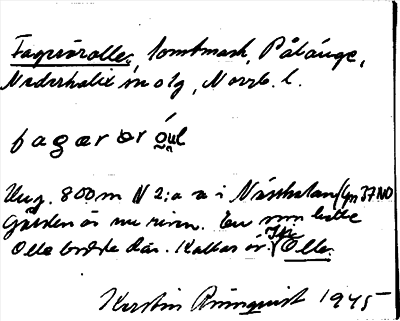 Fagerörolle, tomtmark, Pålänge,
Nederkalix sn o lg, Norrb. l.
fagær ör óul
Ung. 800 m N 2:a a i Näsholan (Gn 37 NO
Gården är nu riven. En som hette
Olle bodde där. Kallas ör Olle.
Kerstin Runquist 1945